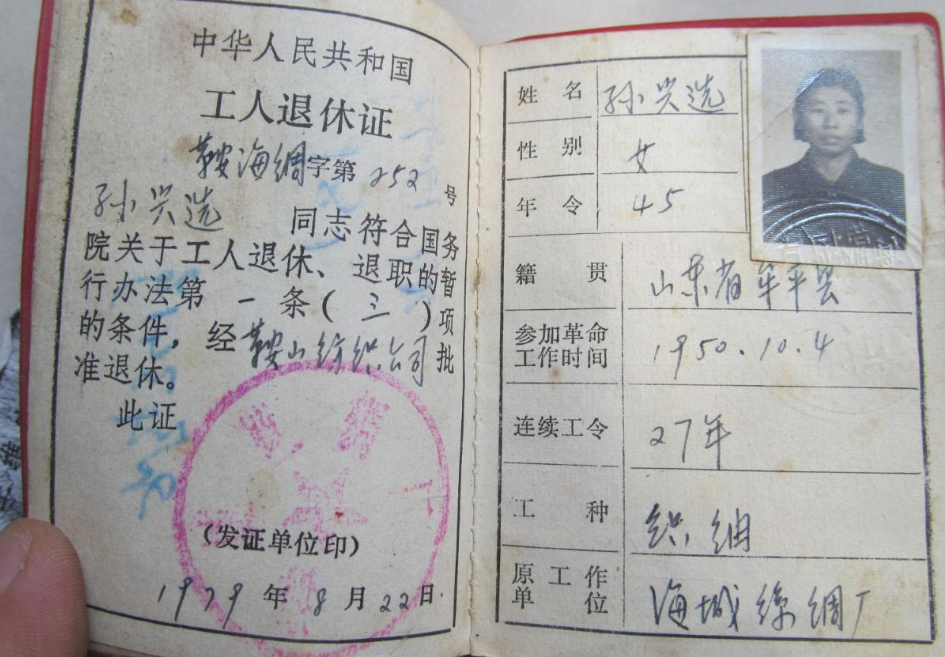 中华人民共和国
工人退休证
鞍海绸字第252号
孙兴选 同志符合国务
院关于工人退休、退职的暂
行办法第一条(三)项
的条件,经鞍山纺织公司批
准退休。
此证
(发证单位印)
1979年8月22日
姓名 孙兴选
性别 女
年令 45
籍贯 山东省牟平县
参加革命工作时间 1950.10.4
连续工令 27年
工种 织绸
原工作单位 海城绦绸厂